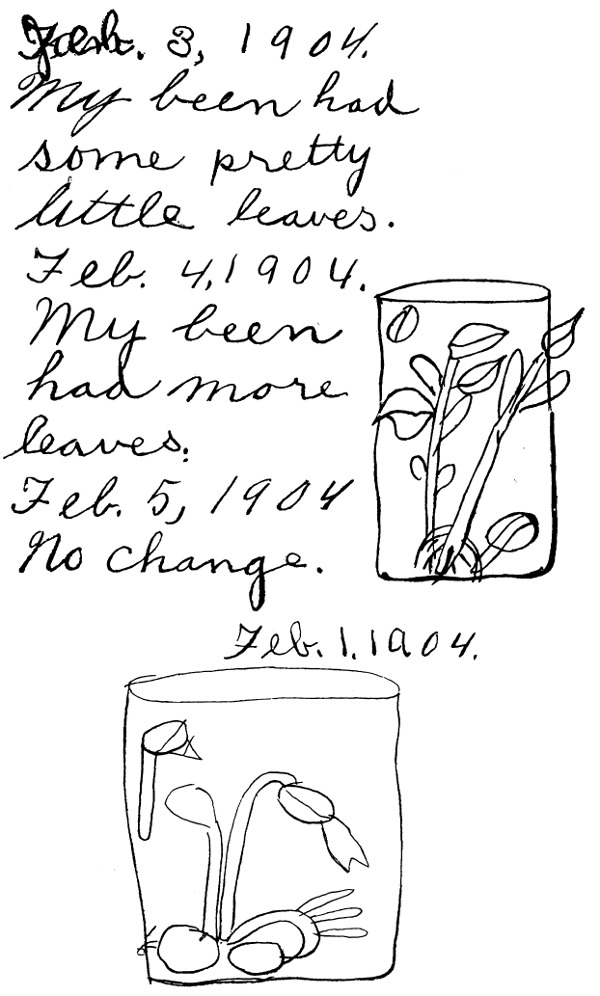 Feb. 3, 1904.
My been had
some pretty
little leaves.
Feb. 4, 1904.
My been
had more
leaves.
Feb. 5, 1904
No change.
Feb. 1. 1904.